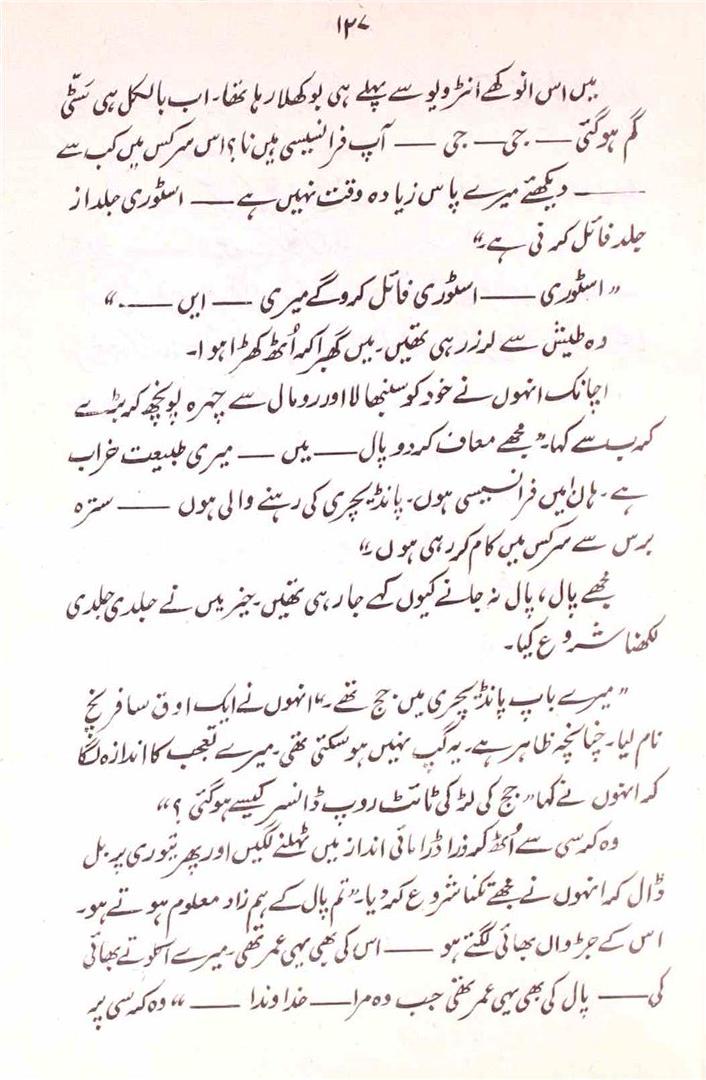 ۱۲۷
میں اس انوکھے انٹرویو سے پہلے ہی بوکھلا رہا تھا۔ اب بالکل ہی سٹّی
گم ہو گئی —— جی —— جی —— آپ فرانسیسی ہیں نا؟ اس سرکس میں کب سے
—— دیکھئے میرے پاس زیادہ وقت نہیں ہے —— اسٹوری جلد از
جلد فائل کرنی ہے۔“
”اسٹوری —— اسٹوری فائل کرو گے میری —— ایں ——۔“
وہ طیش سے لرز رہی تھیں۔ میں گھبرا کر اُٹھ کھڑا ہوا۔
اچانک انہوں نے خود کو سنبھالا اور رومال سے چہرہ پونچھ کر بڑے
کرب سے کہا۔ ”مجھے معاف کر دو پال —— میں —— میری طبیعت خراب
ہے۔ ہاں! میں فرانسیسی ہوں۔ پانڈیچری کی رہنے والی ہوں —— سترہ
برس سے سرکس میں کام کر رہی ہوں۔“
مجھے پال، پال نہ جانے کیوں کہے جا رہی تھیں۔ خیر میں نے جلدی جلدی
لکھنا شروع کیا۔
”میرے باپ پانڈیچری میں جج تھے۔“ انہوں نے ایک اوق سا فرنچ
نام لیا۔ چنانچہ ظاہر ہے۔ یہ گپ نہیں ہو سکتی تھی۔ میرے تعجب کا اندازہ لگا
کر انہوں نے کہا ”جج کی لڑکی ٹائٹ روپ ڈانسر کیسے ہو گئی؟“
وہ کرسی سے اُٹھ کر ذرا ڈرامائی انداز میں ٹہلنے لگیں اور پھر تیوری پر بل
ڈال کر انہوں نے مجھے تکنا شروع کر دیا۔ ”تم پال کے ہم زاد معلوم ہوتے ہو۔
اس کے جڑواں بھائی لگتے ہو —— اس کی بھی یہی عمر تھی۔ میرے اکلوتے بھائی
کی —— پال کی بھی یہی عمر تھی جب وہ مرا —— خداوندا ——“ وہ کرسی پر